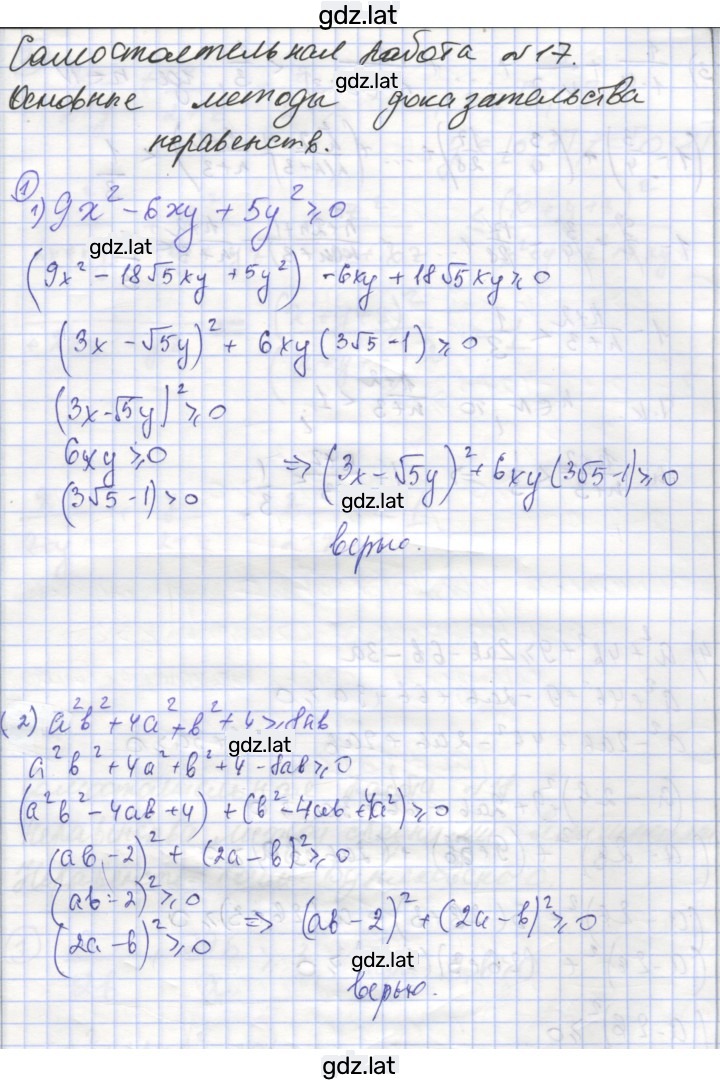 gdz.lat
Самостоятельная работа №17.
gdz.lat
Основные методы доказательства
неравенств.
①
1) 9x² - 6xy + 5y² ≥ 0
gdz.lat
(9x² - 18√5xy + 5y²) - 6xy + 18√5xy ≥ 0
(3x - √5y)² + 6xy(3√5 - 1) ≥ 0
(3x - √5y)² ≥ 0
6xy ≥ 0
(3√5 - 1) > 0
⇒ (3x - √5y)² + 6xy(3√5 - 1) ≥ 0
gdz.lat
верно.
(2) a²b² + 4a² + b² + 4 ≥ 8ab
gdz.lat
a²b² + 4a² + b² + 4 - 8ab ≥ 0
(a²b² - 4ab + 4) + (b² - 4ab + 4a²) ≥ 0
(ab - 2)² + (2a - b)² ≥ 0
(ab - 2)² ≥ 0
(2a - b)² ≥ 0
⇒ (ab - 2)² + (2a - b)² ≥ 0
gdz.lat
верно.
gdz.lat